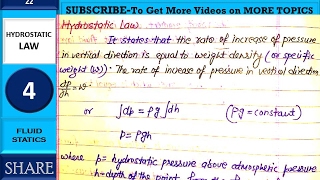 22
SUBSCRIBE-To Get More Videos on MORE TOPICS
HYDROSTATIC
LAW
4
FLUID
STATICS
SHARE
Hydrostatic Law
It states that the rate of increase of pressure
in vertical direction is equal to weight density (or specific
weight (w)). The rate of increase of pressure in vertical direction
dp/dh = w
or ∫dp = ρg∫dh (ρg = constant)
p = ρgh
where p = hydrostatic pressure above atmospheric pressure
h = depth of the point from the